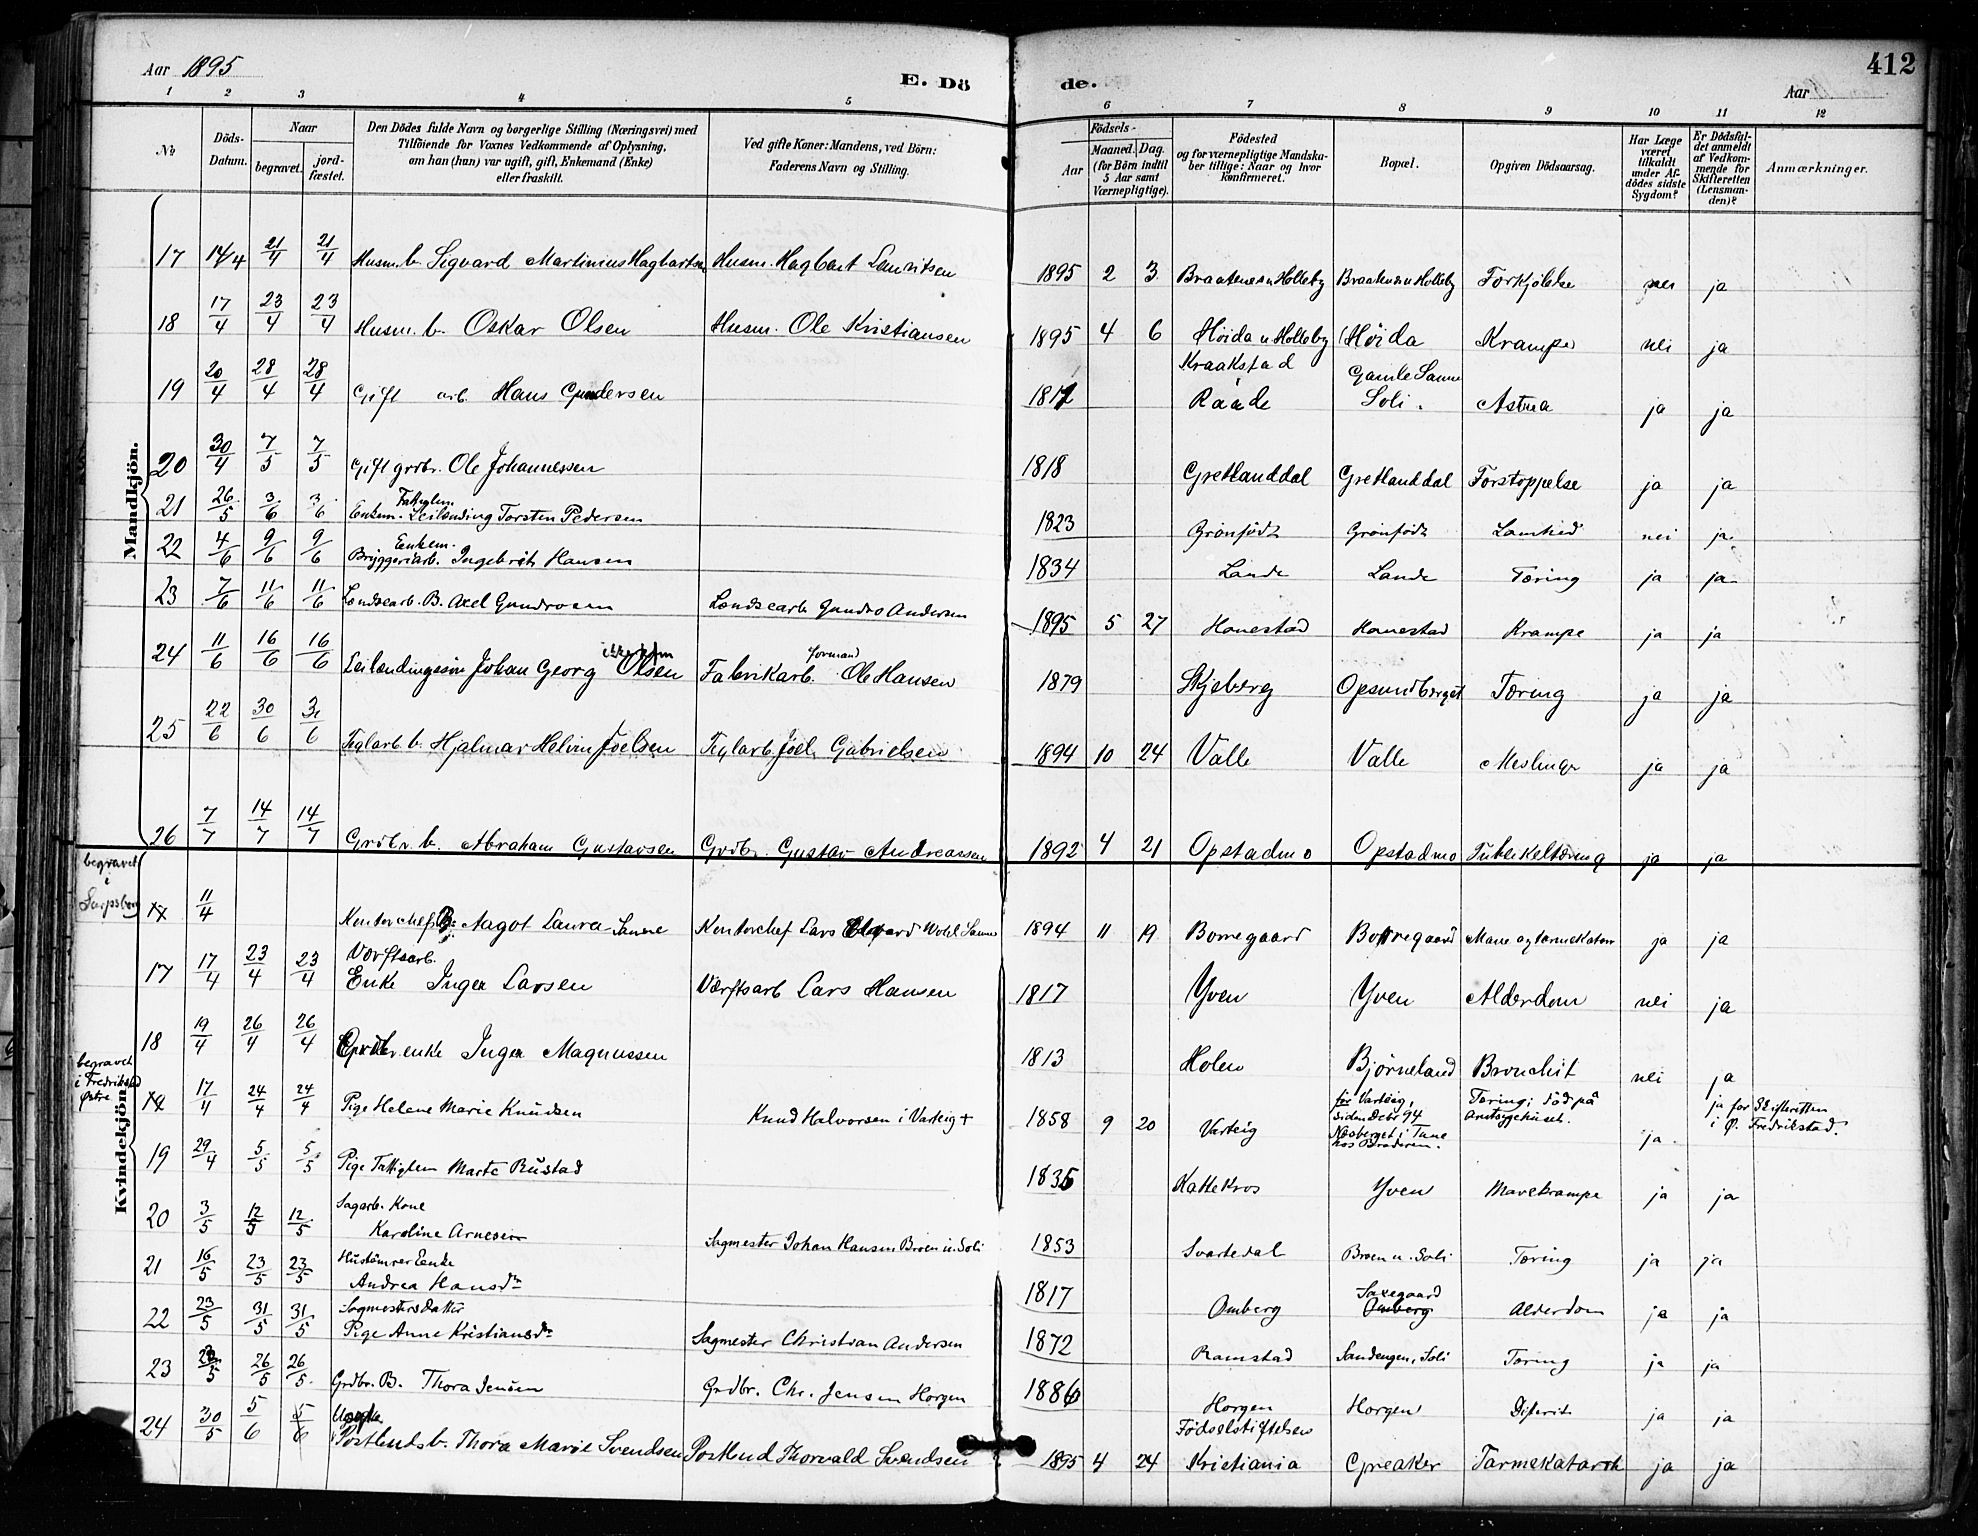 Aar 1895
E. Dö de.
Aar
412
1 2 3 4 5 6 7 8 9 10 11 12
№
Döds-Datum.
Naar
begravet.
jord-fæstet.
Den Dödes fulde Navn og borgerlige Stilling (Næringsvei) med
Tilföiende for Voxnes Vedkommende af Oplysning,
om han (hun) var ugift, gift, Enkemand (Enke)
eller fraskilt.
Ved gifte Koner: Mandens, ved Börn:
Faderens Navn og Stilling.
Födsels-
Aar
Maaned. Dag.
(for Börn indtil
5 Aar samt
Værnepligtige).
Födested
og for værnepligtige Mandska-
ber tillige: Naar og hvor
konfirmeret.
Bopæl.
Opgiven Dödsaarsag.
Har Læge
været
tilkaldt
under Af-
dödes sidste
Sygdom?
Er Dödsfal-
det anmeldt
af Vedkom-
mende for
Skifteretten
(Lensman-
den)?
Anmærkninger.
Mandkjön.
17 14/4 21/4 21/4 Husm. b. Sigvard Martinius Hagbartsen Husm. Hagbart Lauritsen 1895 2 3 Braatenen u Holleby Braatenen u Holleby Forkjølelse nei ja
18 17/4 23/4 23/4 Husm. b. Oskar Olsen Husm. Ole Kristiansen 1895 4 6 Høida u Holleby Høida Krampe nei ja
19 20/4 28/4 28/4 Gift arb. Hans Gundersen 1812 Kraakstad i Raade Gamle Sanne Soli. Astma ja ja
20 30/4 7/5 7/5 Gift grdbr. Ole Johannessen 1818 Gretlanddal Gretlanddal Forstoppelse ja ja
21 26/5 3/6 3/6 Fattiglem. Enkem. Leilænding Torsten Pedersen 1823 Grønfødt Grønfødt Lamhed nei ja
22 4/6 9/6 9/6 Enkem. Bryggeriarb. Ingebrét Hansen 1834 Lande Lande Tæring ja ja
23 7/6 11/6 11/6 Landsearb. B. Axel Gundrosen Landsearb Gundro Andersen 1895 5 27 Hanestad Hanestad Krampe ja ja
24 11/6 16/6 16/6 Leilændingssøn Johan Georg Olsen Fabrikarb. formand Ole Hansen 1879 Skjeberg Opsundberget Tæring ja ja
25 22/6 30/6 3/6 Teglarb. b. Hjalmar Helvin Joelsen Teglarb. Joel Gabrielsen 1894 10 24 Valle Valle Meslinger ja ja
26 7/7 14/7 14/7 Grdbr. b. Abraham Gustavsen Grdbr. Gustav Andreassen 1892 4 21 Opstadmo Opstadmo Tuberkeltæring ja ja
Kvindekjön.
begravet i Sarpsborg
11/4 Kontorchef B. Aagot Laura Sanne Kontorchef Lars Edvard Wohl Sanne 1894 11 19 Borregaard Borregaard Mave og tarmekatarr ja ja
17 17/4 23/4 23/4 Værftsarb. Enke Inger Larsen Værftsarb Lars Hansen 1817 Yven Yven Alderdom nei ja
18 19/4 26/4 26/4 Grdbr. enke Inger Magnussen 1813 Holen Bjørneland Bronchit nei ja
begravet i Fredrikstad Østre
17/4 24/4 24/4 Pige Helene Marie Knudsen Knud Halvorsen i Varteig + 1858 9 20 Varteig før Varteig, siden Dcbr 94 Næsberget i Tune hos Broderen. Tæring; død på amtssygehuset. ja ja for Skifteretten i Ø. Fredrikstad.
19 29/4 5/5 5/5 Pige Fattiglem Marte Rustad 1835 Kattekros Yven Mavekrampe ja ja
20 3/5 12/5 12/5 Sagarb. Kone Karoline Arnesen Sagmester Johan Hansen Broen u. Soli 1853 Svartedal Broen u. Soli Tæring ja ja
21 16/5 23/5 23/5 Hustømrer Enke Andrea Hansdtr 1817 Omberg Saxegaard Omberg Alderdom ja ja
22 23/5 31/5 31/5 Sagmesters datter Pige Anne Kristiansdtr Sagmester Christian Andersen 1872 Ramstad Sandengen, Soli Tæring ja ja
23 22/5 26/5 26/5 Grdbr. B. Thora Jensen Grdbr. Chr. Jensen Horgen 1886 Horgen Horgen Difterit ja ja
24 30/5 5/6 5/6 Uægte Postbuds b. Thora Marie Svendsen Postbud Thorvald Svendsen 1895 4 24 Fødselstiftelsen Kristiania Greaker Tarmekatarrh ja ja